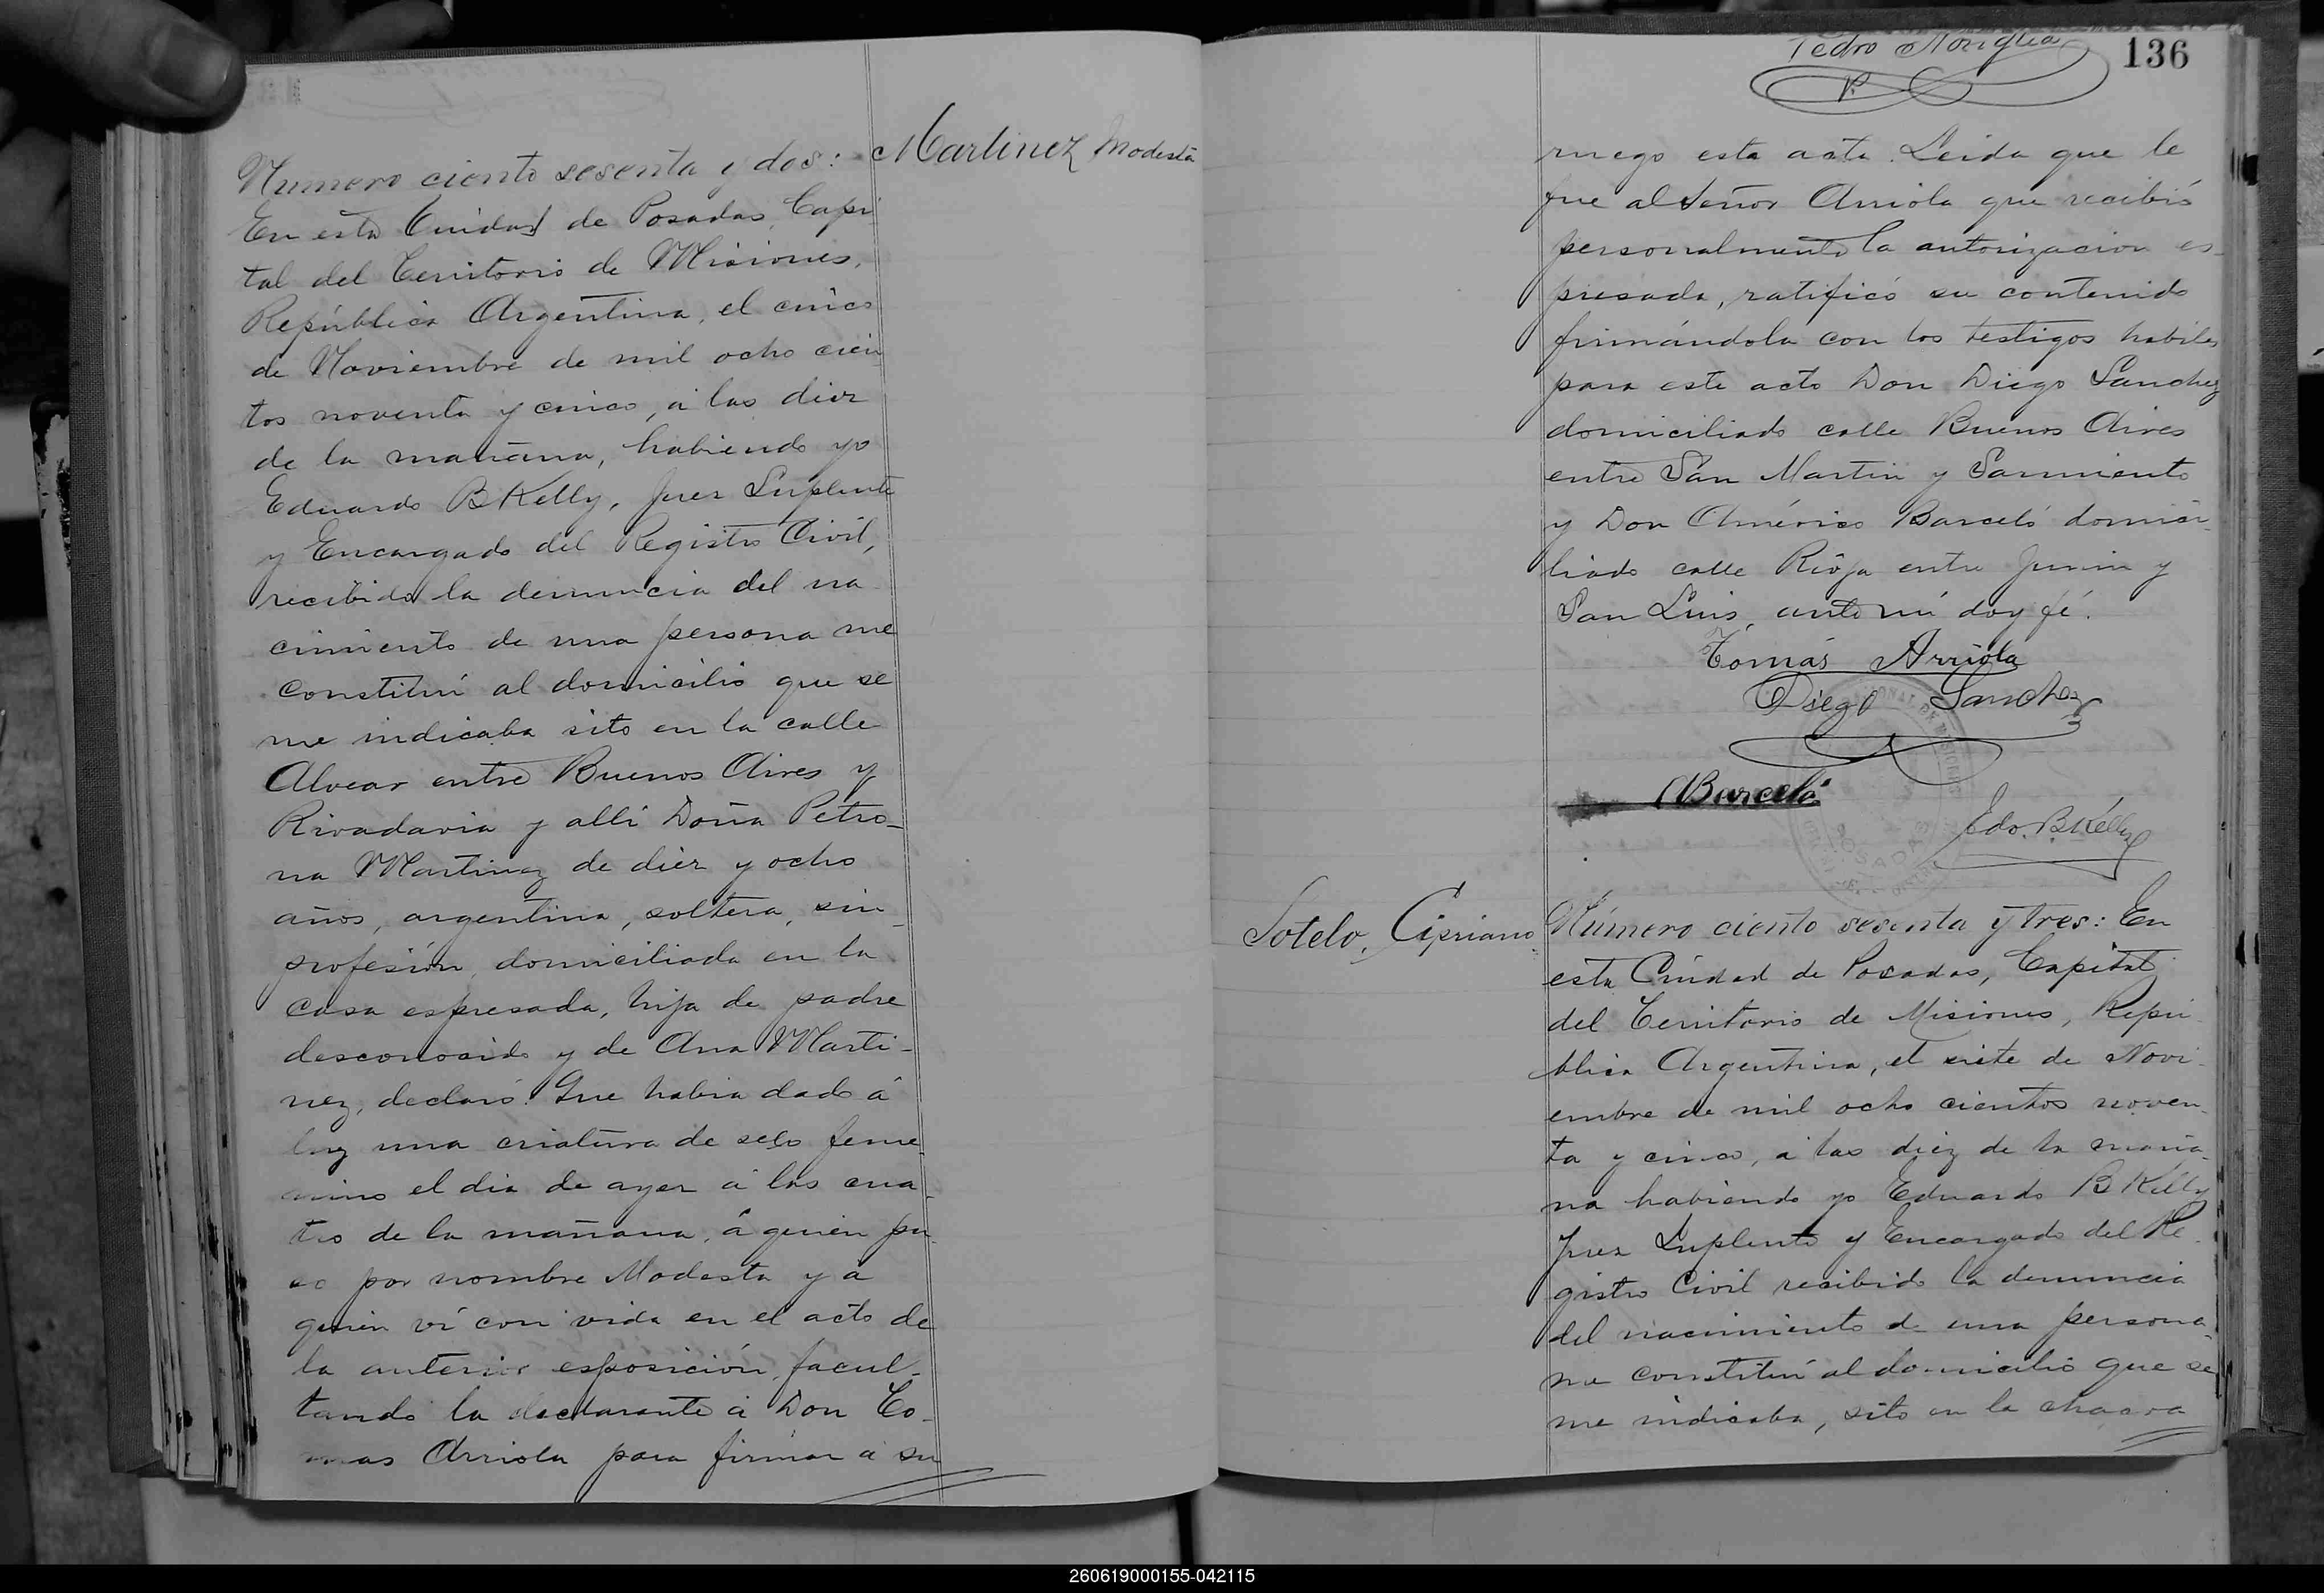 Número ciento sesenta y dos:
Martinez Modesta
En esta Ciudad de Posadas, Capi
tal del Territorio de Misiones,
República Argentina, el cinco
de Noviembre de mil ocho cien
tos noventa y cinco, á las diez
de la mañana, habiendo yo
Eduardo B Kelly, Juez Suplente
y Encargado del Registro Civil,
recibido la denuncia del na
cimiento de una persona me
constituí al domicilio que se
me indicaba sito en la calle
Alvear entre Buenos Aires y
Rivadavia y allí Doña Petro-
na Martinez de diez y ocho
años, argentina, soltera, sin
profesión, domiciliada en la
casa espresada, hija de padre
desconosido y de Ana Marti-
nez, declaró: Que habia dado á
luz una criatura de secso feme
nino el dia de ayer á las cua-
tro de la mañana, á quien pu
so por nombre Modesta y a
quien ví con vida en el acto de
la anterior esposición, facul-
tando la declarante á Don To-
mas Arriola para firmar á su
Pedro
136
ruego esta acta. Leida que le
fue al Señor Arriola que recibió
personalmente la autorizacion es-
presada, ratificó su contenido
firmándola con los testigos habiles
para este acto Don Diego Sanchez
domiciliado calle Buenos Aires
entre San Martin y Sarmiento
y Don Américo Barceló domici-
liado calle Rioja entre Junin y
San Luis, ante mí doy fé.
Tomás Arriola
Diego Sanchez
ABarceló
Edo. B. Kelly
POSADAS
Sotelo, Cipriano
Número ciento sesenta y tres: En
esta Ciudad de Posadas, Capital
del Territorio de Misiones, Repú-
blica Argentina, el siete de Novi-
embre de mil ocho cientos noven-
ta y cinco, á las diez de la maña-
na habiendo yo Eduardo B Kelly
Juez Suplente y Encargado del Re-
gistro Civil recibido la denuncia
del nacimiento de una persona,
me constituí al domicilio que se
me indicaba, sito en la chacra
260619000155-042115